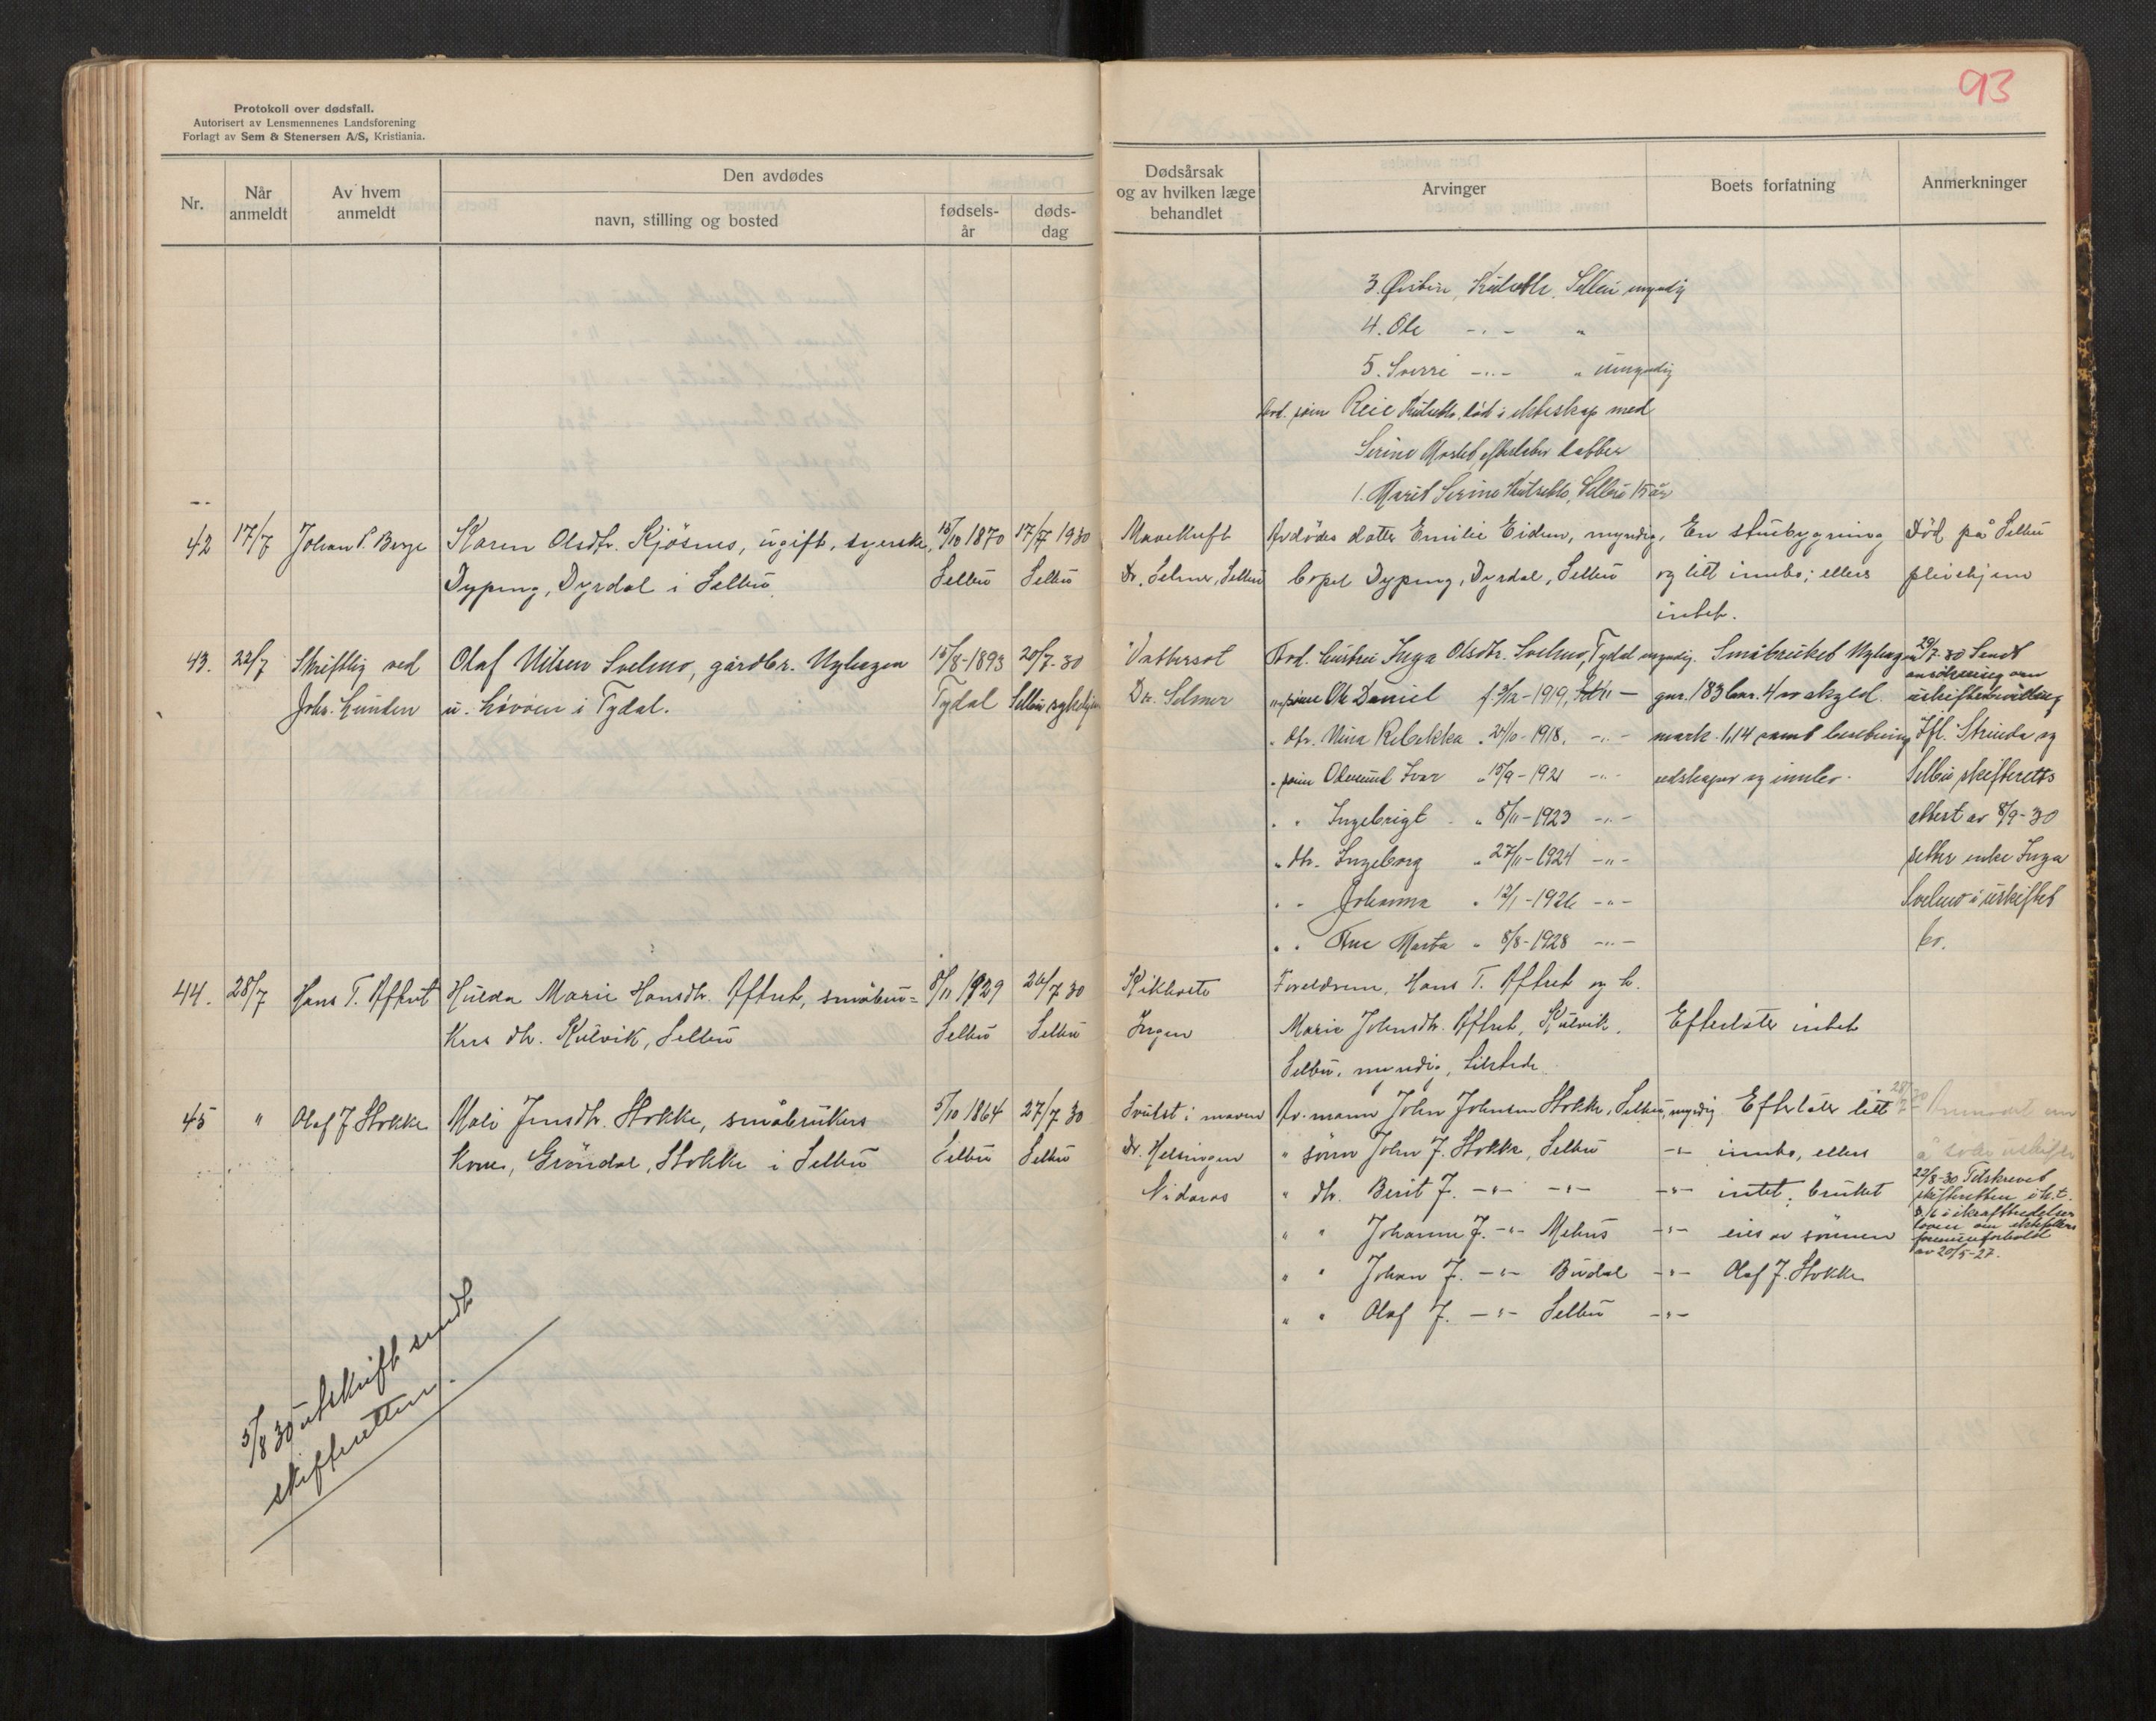 93
Protokoll over dødsfall.
Autorisert av Lensmennenes Landsforening
Forlagt av Sem & Stenersen A/S, Kristiania.
Nr.
Når anmeldt
Av hvem anmeldt
Den avdødes
navn, stilling og bosted
fødsels-år
døds-dag
Dødsårsak og av hvilken læge behandlet
Arvinger
Boets forfatning
Anmerkninger
3. Selbu myndig
4. Ole -"- "
5. Sverre -"- " umyndig
Reie død i ekteskap med
Serine efterlater
1. Marit Serine Selbu 15 år
42 17/7 Johan P. Berge Karen Olsdtr. Kjösnes, ugift, syerske, 15/10 1870 17/7 1930 Mavekreft Avdødes datter Emilie Eidem, myndig, En stuebygning Död på Selbu
Dyping, Dyrdal i Selbu. Selbu Selbu Dr. Selmer, Selbu Dyping, Dyrdal, Selbu og litt innbo; ellers pleiehjem
intet.
43. 22/7 Skriftlig ved Olaf Nilsen Svelmo, gårdbr. Nyhagen 15/8-1893 20/7-30 Vattersot Avd. hustru Inga Olsdtr. Svelmo, Tydal myndig. Småbruket Nyhagen 29/7-30 Sendt
ansökning om
Johs. Lunden u. Lövöien i Tydal. Tydal Selbu sykehjem Dr. Selmer " sönn Ole Daniel f. 3/12-1919, gnr. 183 bnr. 4 av skyld uskiftebevilling
" dtr. Nina Rebekka " 24/10-1918, -"- mark 1,14 samt besetning Ifl. Strinda og
" sönn Odmund Ivar " 15/9-1921 -"- redskaper og innbo. Selbu skifteretts
" " Ingebrigt " 8/11-1923 -"- attest av 8/9-30
" dtr. Ingeborg " 27/11-1924 -"- sitter enke Inga
" " Johanna " 12/1-1926 -"- Svelmo i uskiftet
" " Ane Marta " 8/8-1928 -"- bo.
44. 28/7 Hans T. Aftret Hulda Marie Hansdtr. Aftret, småbru- 8/11 1929 26/7 30 Kikhoste Foreldrene, Hans T. Aftret og h.
kers dtr. Kulvik, Selbu Selbu Selbu Ingen Marie Johnsdtr. Aftret, Kulvik, Efterlater intet
Selbu, myndig, tilstede.
45 " Olaf J. Stokke Mali Jensdtr. Stokke, småbrukers 5/10 1864 27/7 30 Svulst i maven Av. mann John Johnsen Stokke, Selbu, myndig Efterlater litt 28/7 Anmodet om
kone, Gröndal, Stokke i Selbu Selbu Selbu Dr. Helsingen " sönn John J. Stokke, Selbu -"- innbo, ellers å söke uskifte
Nidaros " dtr. Berit J. -"- -"- -"- intet, bruket 22/8-30 Tilskrevet
skifteretten i h.t.
" " Johanne J. -"- Mehus -"- eies av sönnen § 6 i ikrafttredelses
loven om ektefellers
formuesforhold
av 20/5-27.
" " Johan J. -"- Budal -"- Olaf J. Stokke
" " Olaf J. -"- Selbu -"-
5/8 30 utskrift sendt
skifteretten.